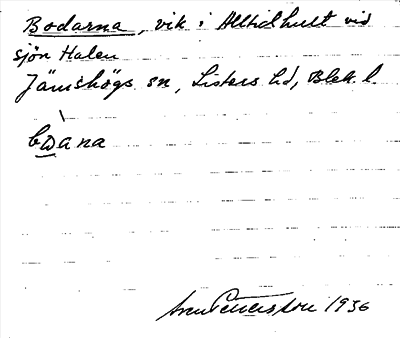 Bodarna, vik i Alltidhult vid
sjön Halen
Jämshögs sn, Listers hd, Blek. l.
bωana
Sven Petersson 1936